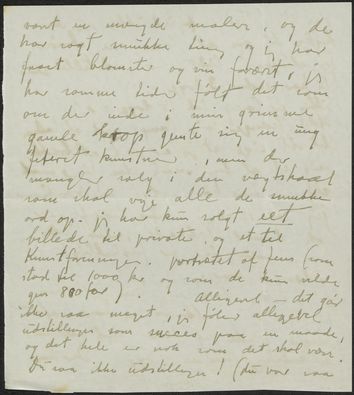 vort en mængde maler, og de
har sagt smukke ting og jeg har
faaet blomster og vin forært, jeg
har somme tider følt det som
om der inde i min grimme
gamle krop gemte sig en ung
feteret kunstner, men der
mangler salg i den vægtskaal
som skal veje alle de smukke
ord op. jeg har kun solgt eet
billede til private, og et til
Kunstforeningen. portrættet af Jens (som
stod til 1000 kr og som de kun vilde
give 800 for). Alligevel – det gør
ikke saa meget, jeg føler alligevel
udstillingen som succes paa en maade,
og det hele er nok som det skal være.
Du saa ikke udstillingen! (du var saa